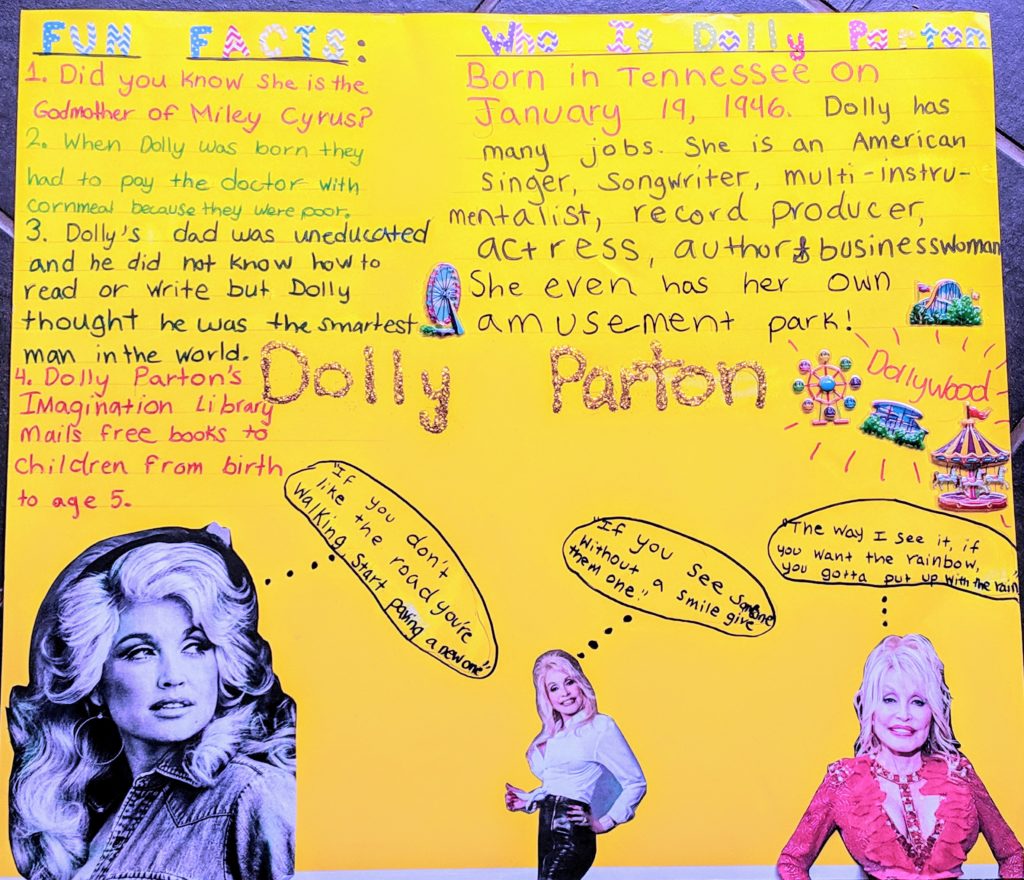 FUN FACTS:
1. Did you know she is the
Godmother of Miley Cyrus?
2. When Dolly was born they
had to pay the doctor with
cornmeal because they were poor.
3. Dolly's dad was uneducated
and he did not know how to
read or write but Dolly
thought he was the smartest
man in the world.
4. Dolly Parton's
Imagination Library
Mails free books to
Children from birth
to age 5.
Who Is Dolly Parton
Born in Tennessee on
January 19, 1946. Dolly has
many jobs. She is an American
singer, songwriter, multi-instru-
mentalist, record producer,
actress, author & businesswoman
She even has her own
amusement park!
Dolly Parton
Dollywood
"If you don't
like the road you're
walking, start paving a new one"
"If you see someone
without a smile give
them one."
"The way I see it, if
you want the rainbow,
you gotta put up with the rain